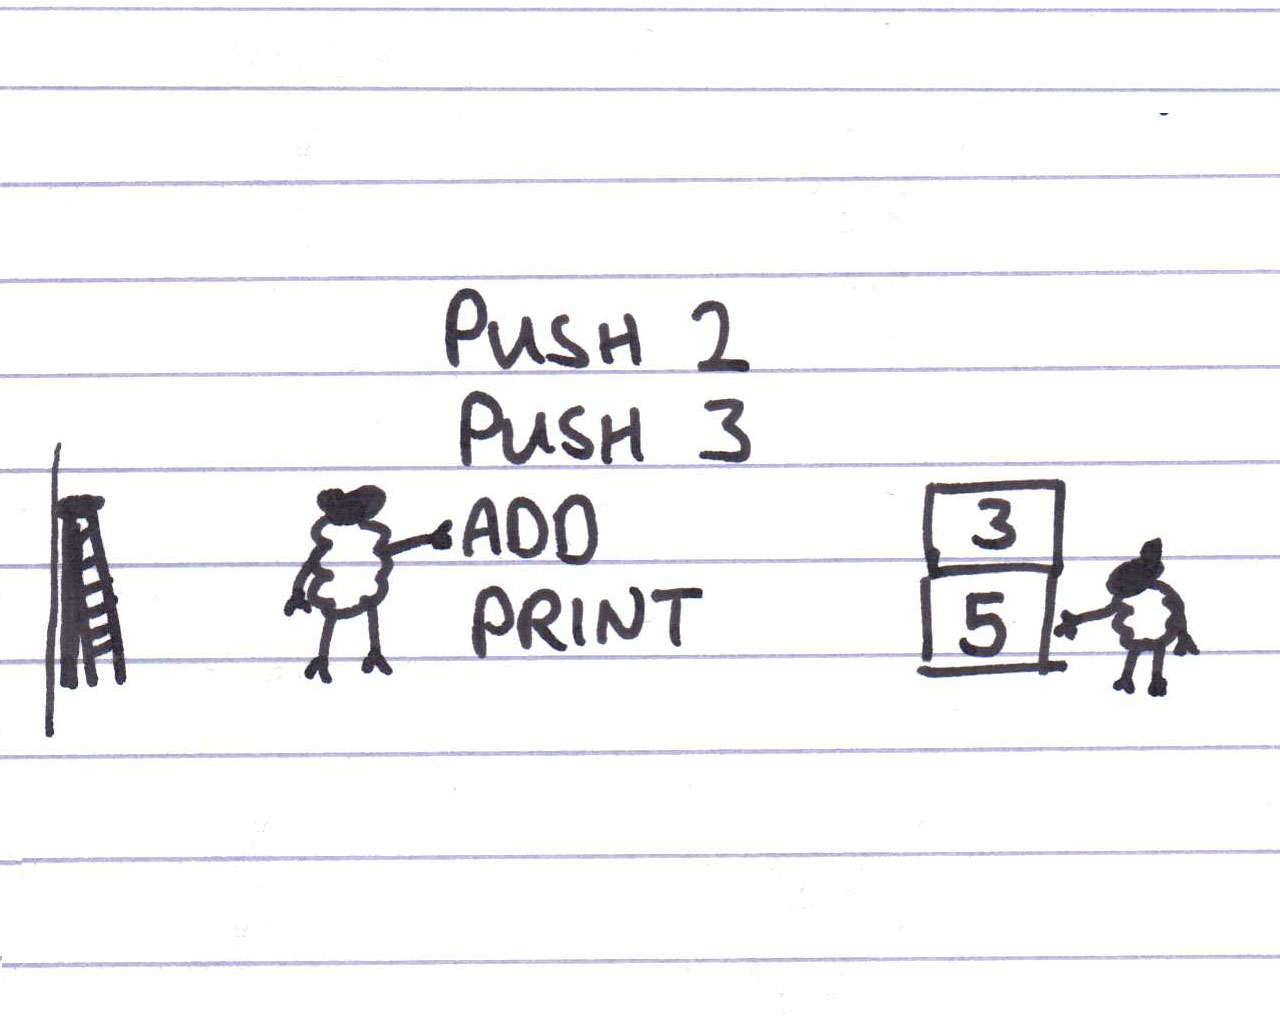 PUSH 2
PUSH 3
ADD
PRINT
3
5